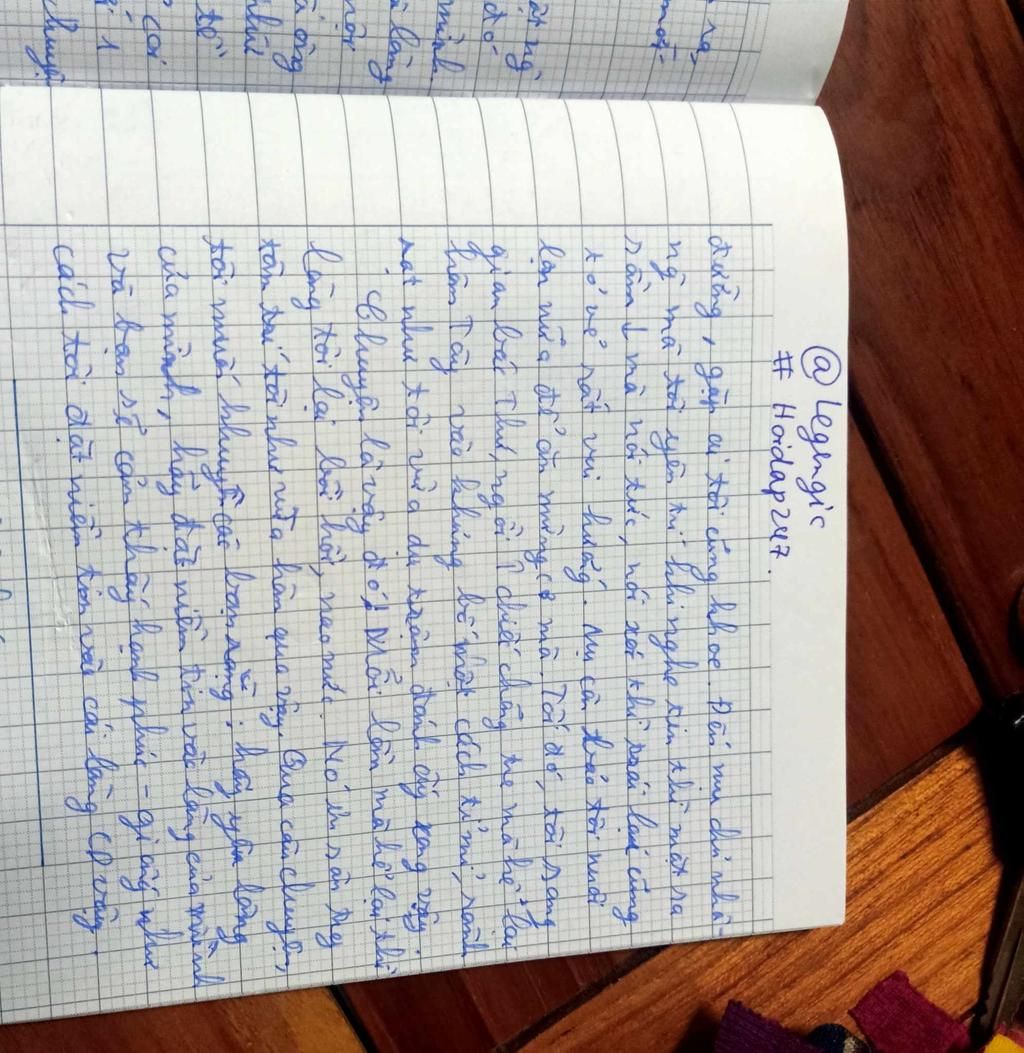 @ Legengic
# Hoidap247.
đường, gặp ai tôi cũng khoe. Đến mụ chủ nhà
ng mà tôi yên trí khi nghe tin thì mặt
mà nói tức, nói xói thì lại cũng
tỏ vẻ rất vui hưởng. Mụ còn bảo tôi nuôi
lợn nữa để ăn mừng cơ mà. Tối đó, tôi sang
gian bác Thứ, ngồi 1 chiếc chõng tre mà kể lại
trận Tây vào khủng bố một cách tỉ mỉ, rành
rọt như tôi vừa dự trận đánh ấy xong vậy.
Chuyện là vậy đó! Mỗi lần mà kể lại thì
lòng tôi lại bồi hồi, nao nức. Nó in sâu ng
tâm trí tôi như vừa hôm qua vậy. Qua câu chuyện,
tôi muốn khuyên các bạn rằng: hãy yêu làng
của mình, hãy đặt niềm tin vào làng của mình
và bạn sẽ cảm thấy hạnh phúc - giống như
cách tôi đặt niềm tin vào cái làng CD vậy.